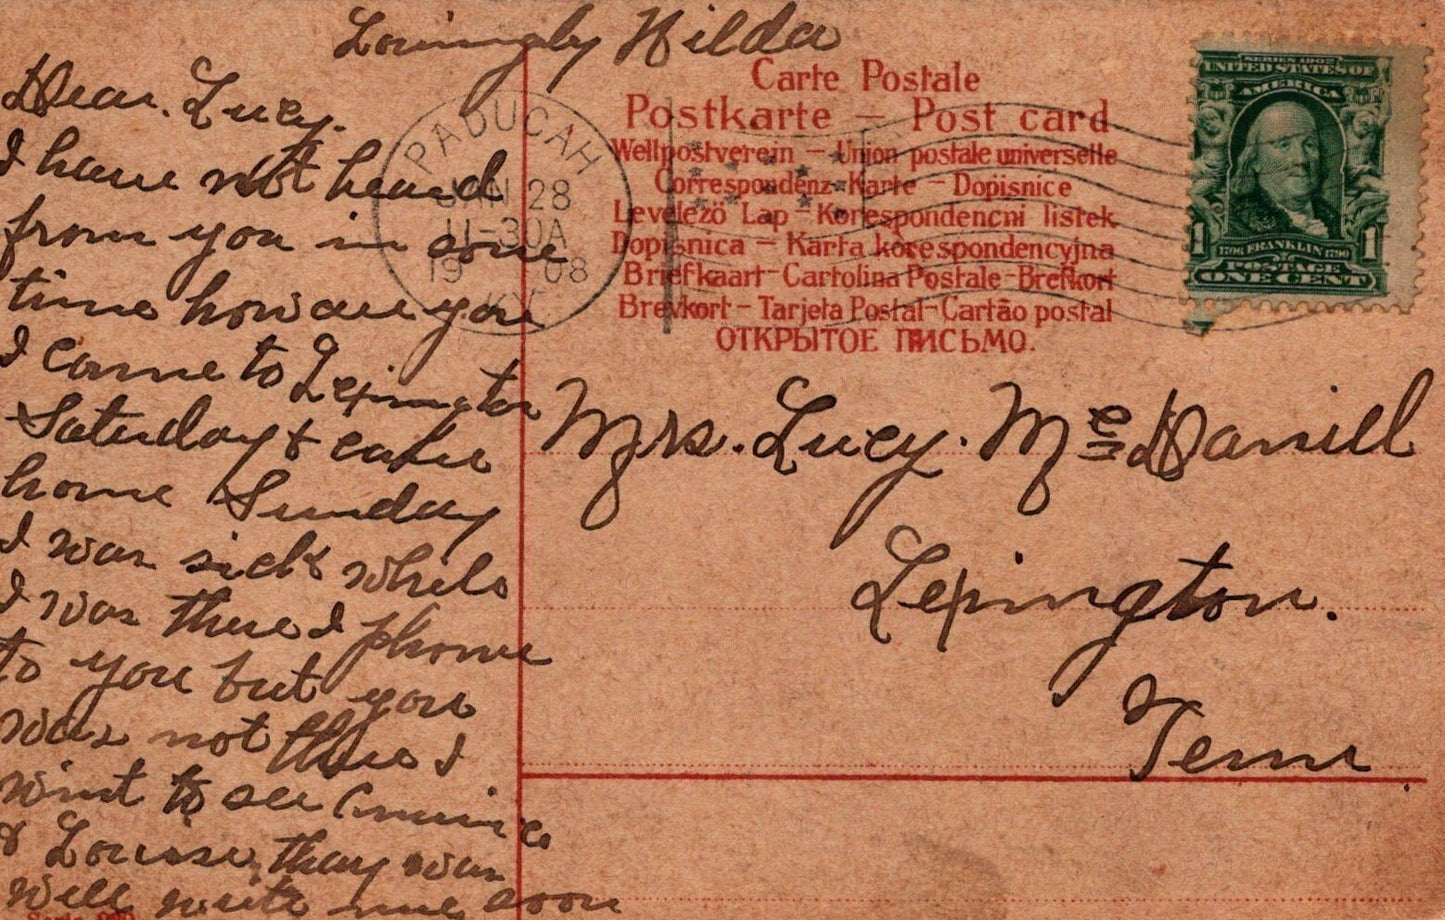 Lovingly Hilda
Dear. Lucy.
I have not heard
from you in some
time how are you
I came to Lexington
Saturday & came
home Sunday
I was sick while
I was there I phone
to you but you
was not there I
wint to see
& Louise, thay was
well write me soon
PADUCAH
JAN 28
11-30A
1908
KY.
Carte Postale
Postkarte – Post card
Weltpostverein – Union postale universelle
Correspondenz-Karte – Dopisnice
Levelezö Lap – Korespondencni listek
Dopisnica – Karta korespondencyjna
Briefkaart – Cartolina Postale – Brefkort
Brevkort – Tarjeta Postal – Cartão postal
ОТКРЫТОЕ ПИСЬМО.
SERIES 1902
UNITED STATES OF
AMERICA
1706 FRANKLIN 1790
1 POSTAGE 1
ONE CENT
Mrs. Lucy. Mc Daniell
Lexington.
Tenn